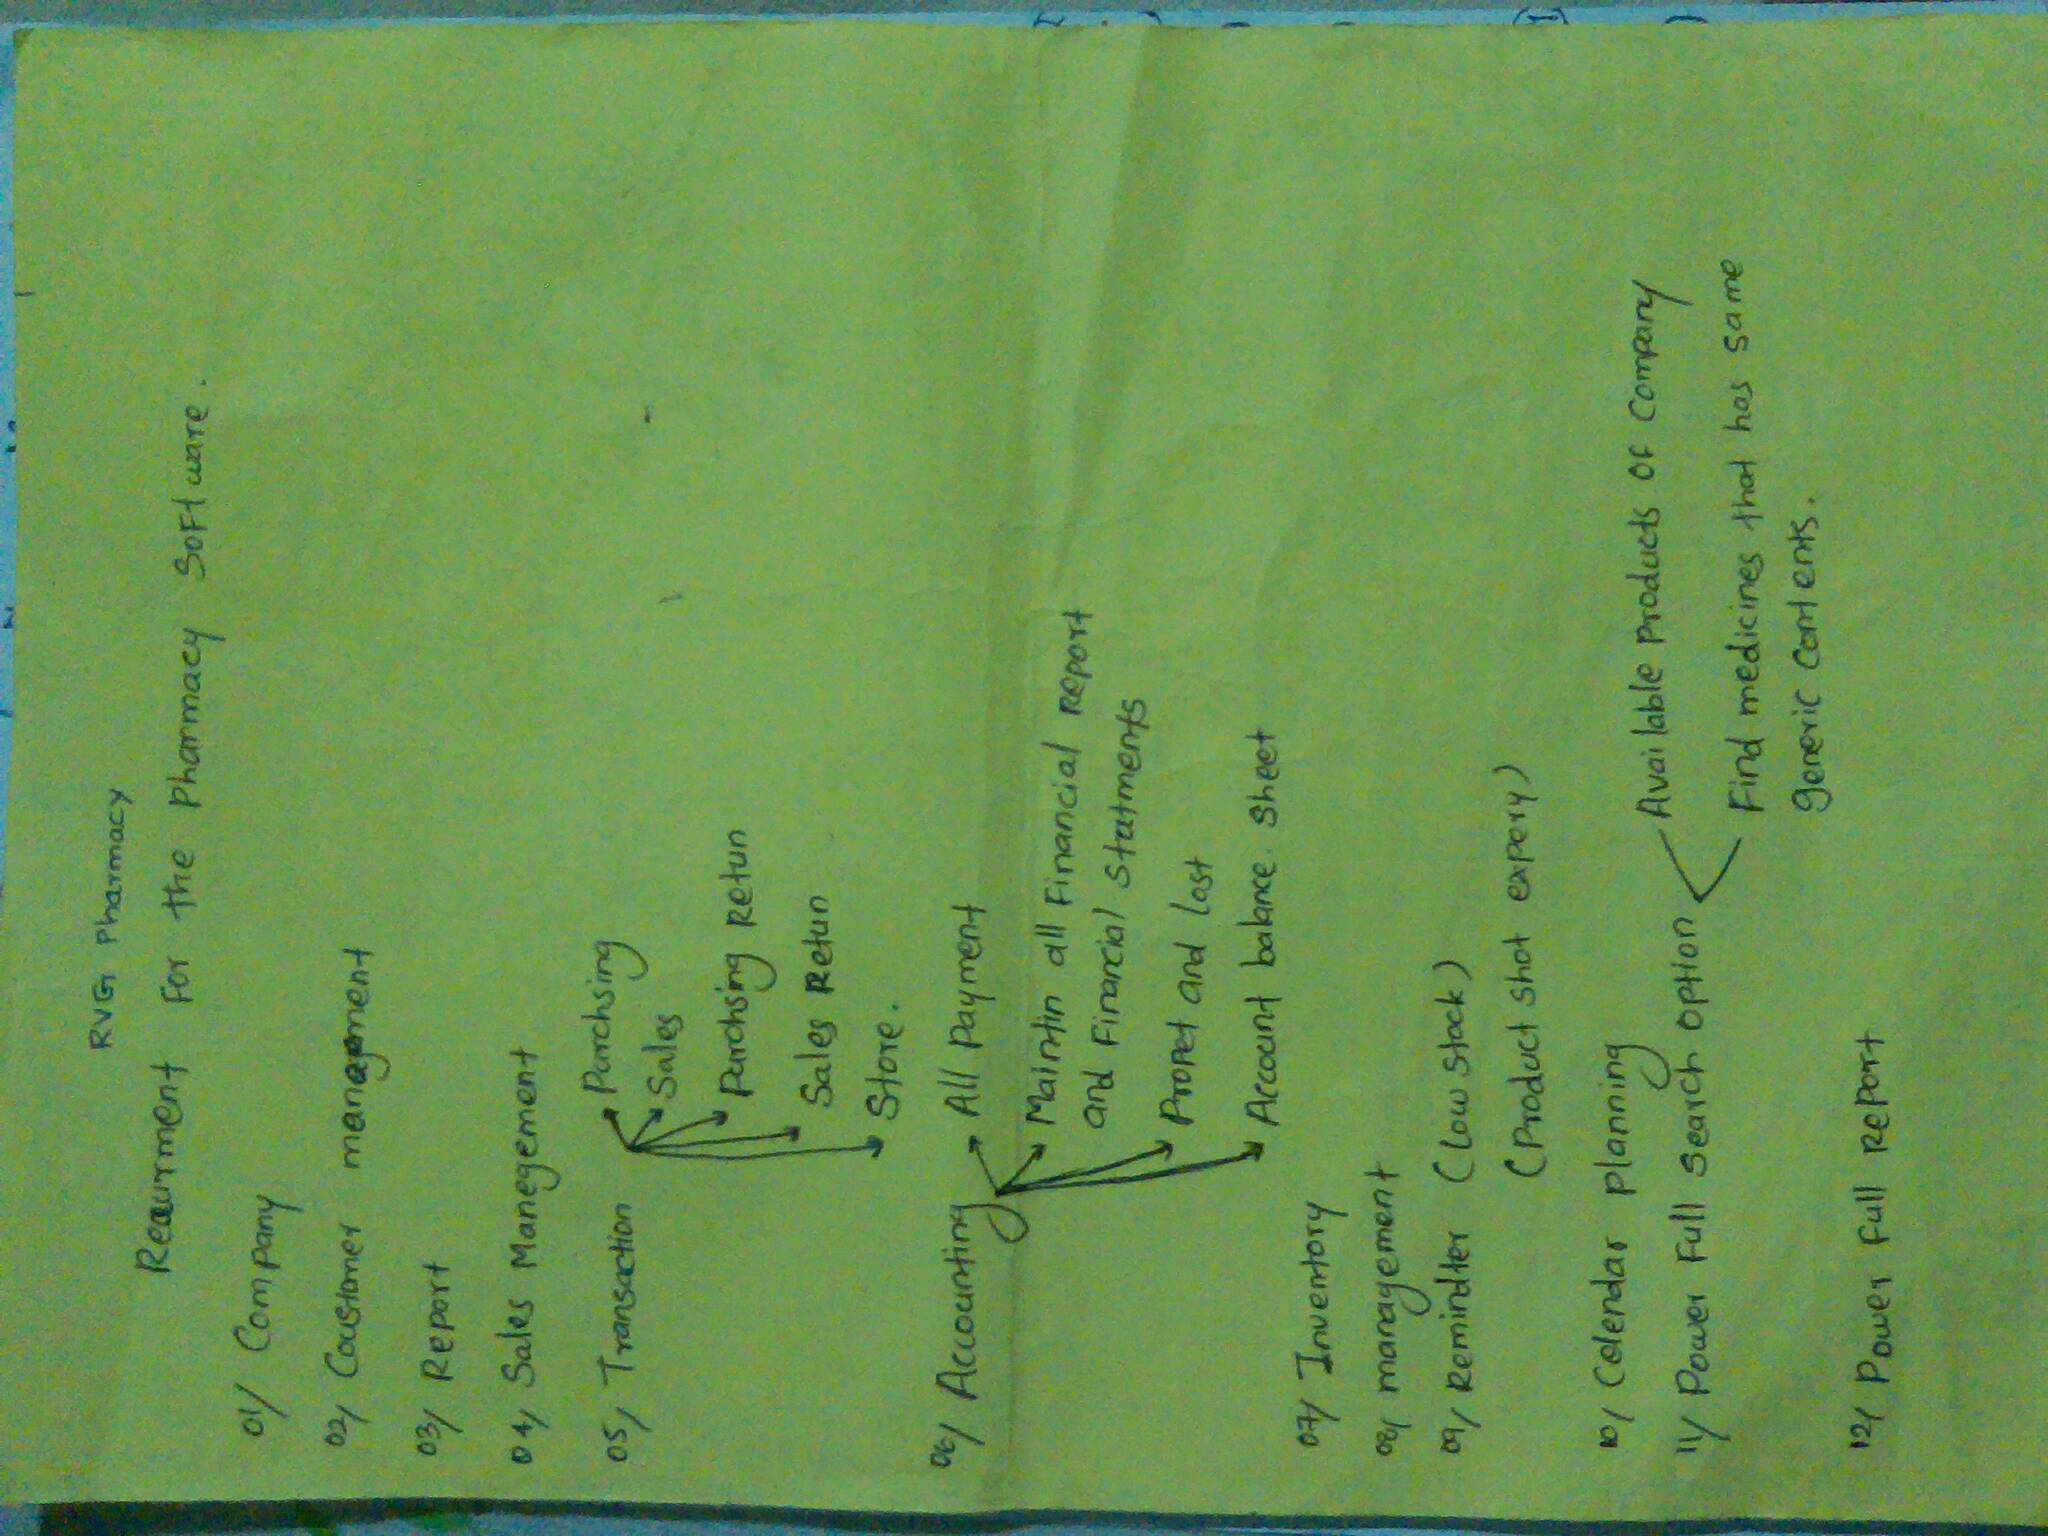 RVG Pharmacy
Requrment For the Pharmacy Software.
01/ Company
02/ Coustomer management
03/ Report
04/ Sales Manegement
05/ Transaction
Purchsing
Sales
Purchsing Retun
Sales Retun
Store.
06/ Accounting
All Payment
Maintin all Financial Report
and Financial Statments
Propet and lost
Account balance. Sheet
07/ Inventory
08/ management
09/ Remindter (Low Stock)
(Product shot expery)
10/ Celendar planning
11/ Power Full Search Option
Available Products OF Company
Find medicines that has same
generic contents.
12/ Power Full Report